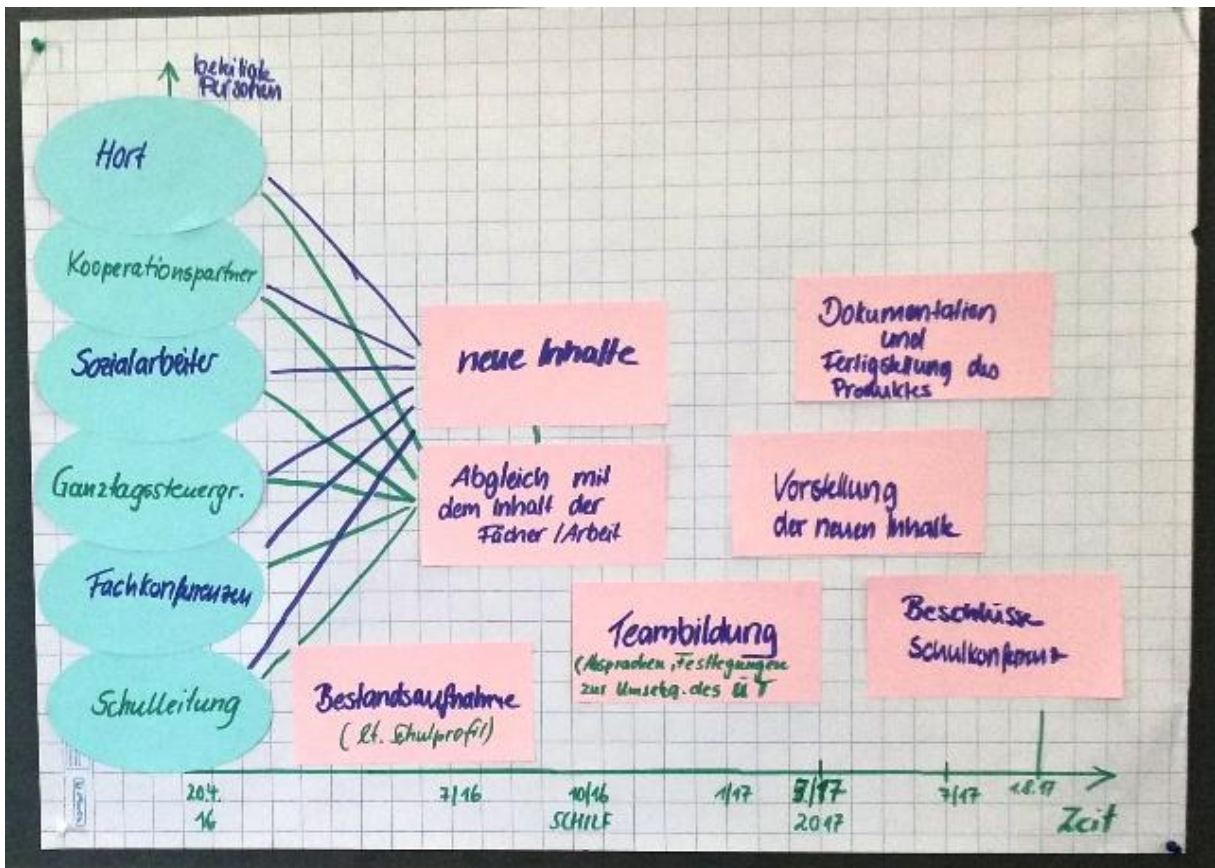 beteiligte
Personen
Hort
Kooperationspartner
Sozialarbeiter
Ganztagssteuergr.
Fachkonferenzen
Schulleitung
neue Inhalte
Abgleich mit
dem Inhalt der
Fächer / Arbeit
Bestandsaufnahme
(lt. Schulprofil)
Teambildung
(Absprachen, Festlegungen
zur Umsetzg. des ÜT
Dokumentation
und
Fertigstellung des
Produktes
Vorstellung
der neuen Inhalte
Beschlüsse
Schulkonferenz
20.4.
16
7/16
10/16
SCHILF
1/17
/17
2017
7/17
1.8.17
Zeit